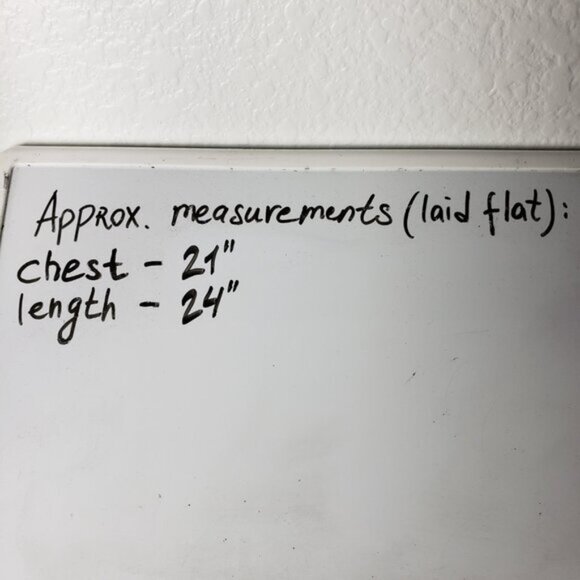 Approx. measurements (laid flat):
chest - 21"
length - 24"